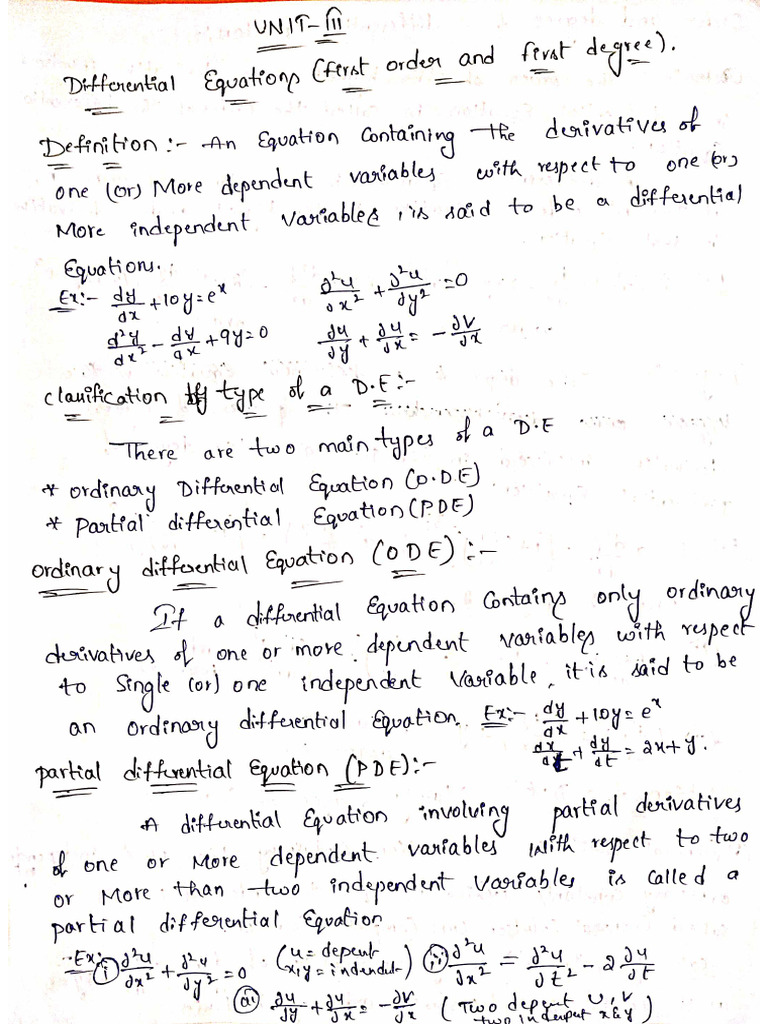 UNIT-III
Differential Equations (first order and first degree).
Definition :- An Equation Containing the derivatives of
one (or) More dependent variables with respect to one (or)
More independent variables, is said to be a differential
Equations.
Ex:- dy/dx + 10y = e^x    ∂²u/∂x² + ∂²u/∂y² = 0
d²y/dx² - dy/dx + 9y = 0    ∂u/∂y + ∂u/∂x = -∂v/∂x
classification of type of a D.E :-
There are two main types of a D.E
* ordinary Differential Equation (O.D.E)
* Partial differential Equation (PDE)
ordinary differential Equation (ODE) :-
If a differential Equation Contains only ordinary
derivatives of one or more dependent variables with respect
to Single (or) one independent Variable, it is said to be
an ordinary differential Equation. Ex:- dy/dx + 10y = e^x
dx/dt + dy/dt = 2x + y.
partial differential Equation (PDE) :-
A differential Equation involving partial derivatives
of one or More dependent variables with respect to two
or More than two independent variables is called a
partial differential Equation
Ex:- (i) ∂²u/∂x² + ∂²u/∂y² = 0 (u = depent x,y = indendut) (ii) ∂²u/∂x² = ∂²u/∂t² - 2 ∂u/∂t
(iii) ∂u/∂y + ∂u/∂x = -∂v/∂x (Two depent U,V two x & y)